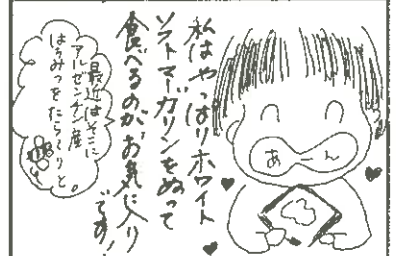 私はやっぱりホワイト
ソフトマーガリンをぬって
食べるのが、お気に入り
です!
最近はそこに
アルゼンチン産
はちみつをたら〜りと。
あーん